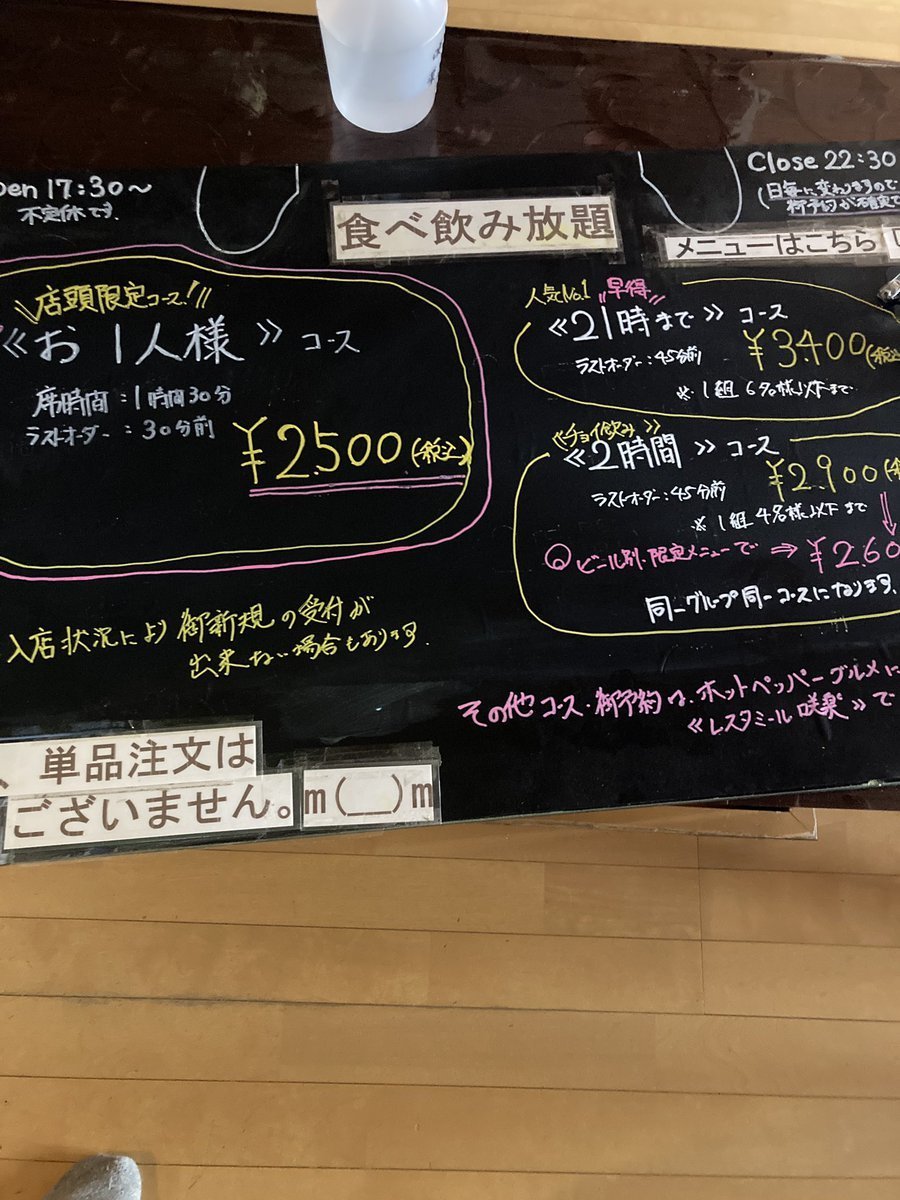 pen 17:30～
不定休です.
Close 22:30
(日毎に変わりますので
食べ飲み放題
メニューはこちら
店頭限定コース!!
《お1人様》コース
席時間:1時間30分
ラストオーダー:30分前
¥2,500(税込)
人気No.1 早得
《21時まで》コース
ラストオーダー:45分前
¥3,400(税込
※1組 6名様以下まで
《チョイ飲み》
《2時間》コース
ラストオーダー:45分前
¥2,900(
※1組 4名様以下まで
ビール別・限定メニューで ⇒ ¥2,60
同一グループ同一コースになります.
入店状況により御新規の受付が
出来ない場合もあります.
その他コース・御予約は、ホットペッパーグルメに
《レスタミール咲楽》で
、単品注文は
ございません。m(__)m